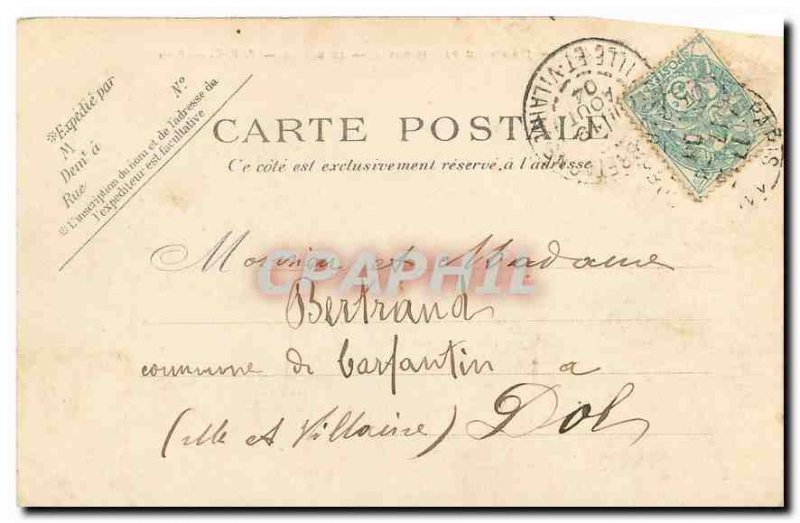 Expédié par Nº
M
Demt à
Rue
L'inscription du nom et de l'adresse de
l'expéditeur est facultative
CARTE POSTALE
Ce côté est exclusivement réservé à l'adresse
ILLE-ET-VILAINE
AOUT
04
PARIS
Monsieur et Madame
CPAPHIL
Bertrand
commune de Carfantin à
(ille et Villaine) Dol